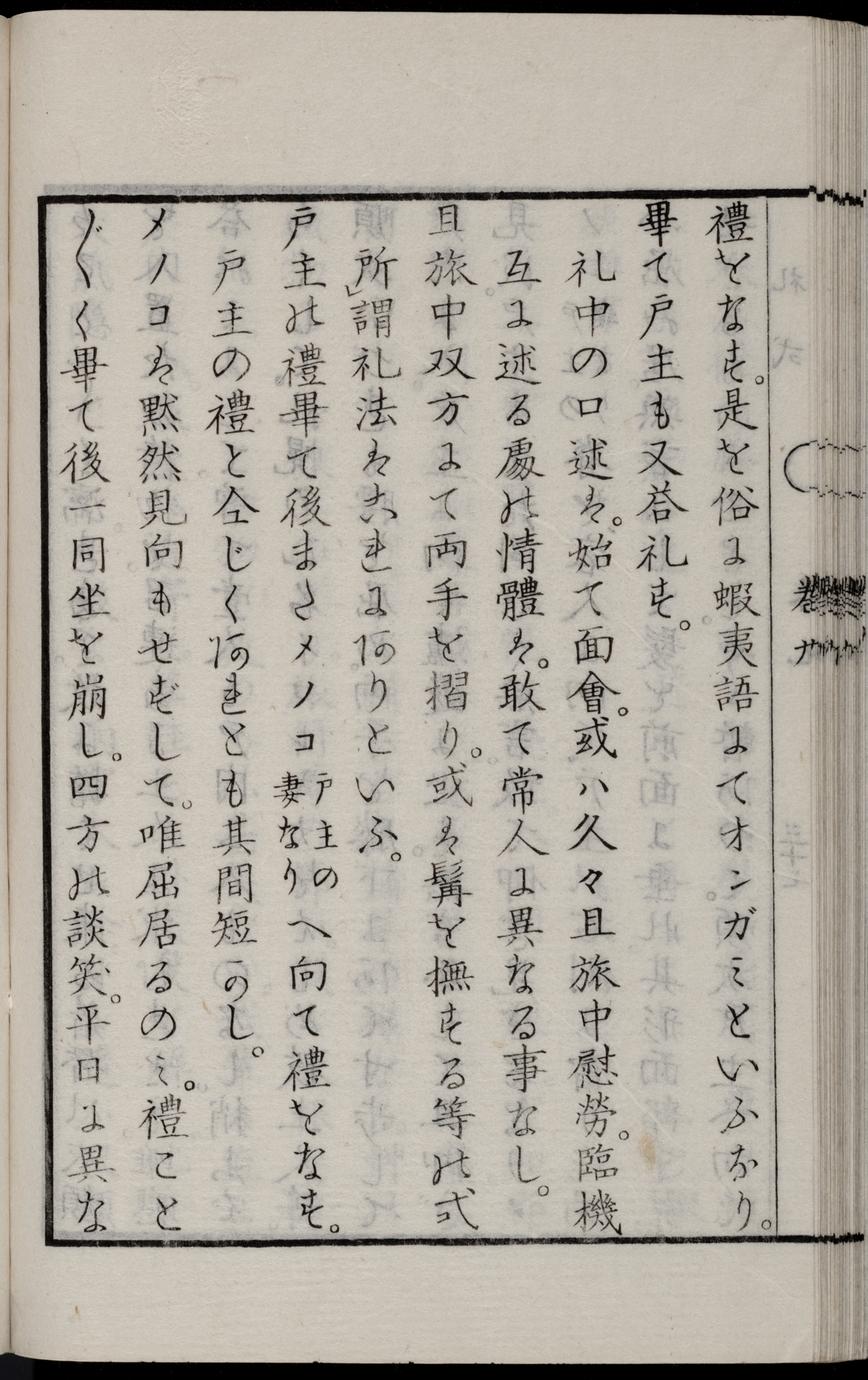 禮をなす。是を俗に蝦夷語にてオンガミといふなり。
畢て戸主も又荅礼す。
礼中の口述は。始て面會。或ハ久々且旅中慰勞。臨機
互に述る處の情體は。敢て常人に異なる事なし。
且旅中双方にて両手を摺り。或は髯を撫する等の式
所謂礼法はこれにありといふ。
戸主の禮畢て後またメノコ戸主の妻なりへ向て禮をなす。
戸主の禮と仝じくあれとも其間短かし。
メノコは黙然見向もせずして。唯屈居るのミ。禮こと
〴〵く畢て後一同坐を崩し。四方の談笑。平日に異な
巻